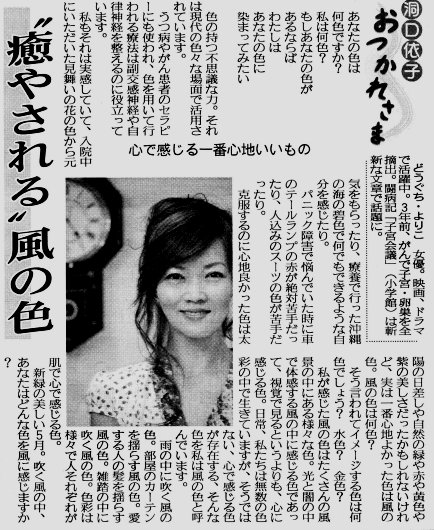 洞口依子
おつかれさま
あなたの色は
何色ですか?
私は何色?
もしあなたの色が
あるならば
わたしは
あなたの色に
染まってみたい
色の持つ不思議な力。それ
は現代の色々な場面で活用さ
れています。
うつ病やがん患者のセラピ
ーにも使われ、色を用いて行
われる療法は副交感神経や自
律神経を整えるのに役立って
います。
私もそれは実感していて、入院中
にいただいた見舞いの花の色から元
〝癒やされる〟風の色
心で感じる一番心地いいもの
どうぐち・よりこ 女優。映画、ドラマ
で活躍中。3年前、がんで子宮・卵巣を全
摘出。闘病記「子宮会議」(小学館)は斬
新な文章で話題に。
気をもらったり、療養で行った沖縄
の海の碧色で何でもできるような自
分を感じたり。
パニック障害で悩んでいた時に車
のテールランプの赤が絶対苦手だっ
たり、人込みのスーツの色が苦手だ
ったり。
克服するのに心地良かった色は太
陽の日差しや自然の緑や赤や黄色や
紫の美しさだったかもしれないけれ
ど、実は一番心地よかった色は風の
色。風の色は何色?
そう言われてイメージする色は何
色でしょう? 水色? 金色?
私が感じた風の色はたくさんの風
景の中にある様々な色。光と闇の中
で体感する風の中に感じる色であっ
て、視覚で見るというよりも、心に
感じる色。日常、私たちは無数の色
彩の中で生きていますが、そうでは
ない、心で感じる色
が存在する、そんな
色を私は風の色と呼
んでいます。
雨の中に吹く風の
色。部屋のカーテン
を揺らす風の色。愛
する人の髪を揺らす
風の色。雑踏の中に
吹く風の色。色彩は
様々で人それぞれが
肌で心で感じる色。
新緑の美しい5月。吹く風の中、
あなたはどんな色を風に感じますか
?